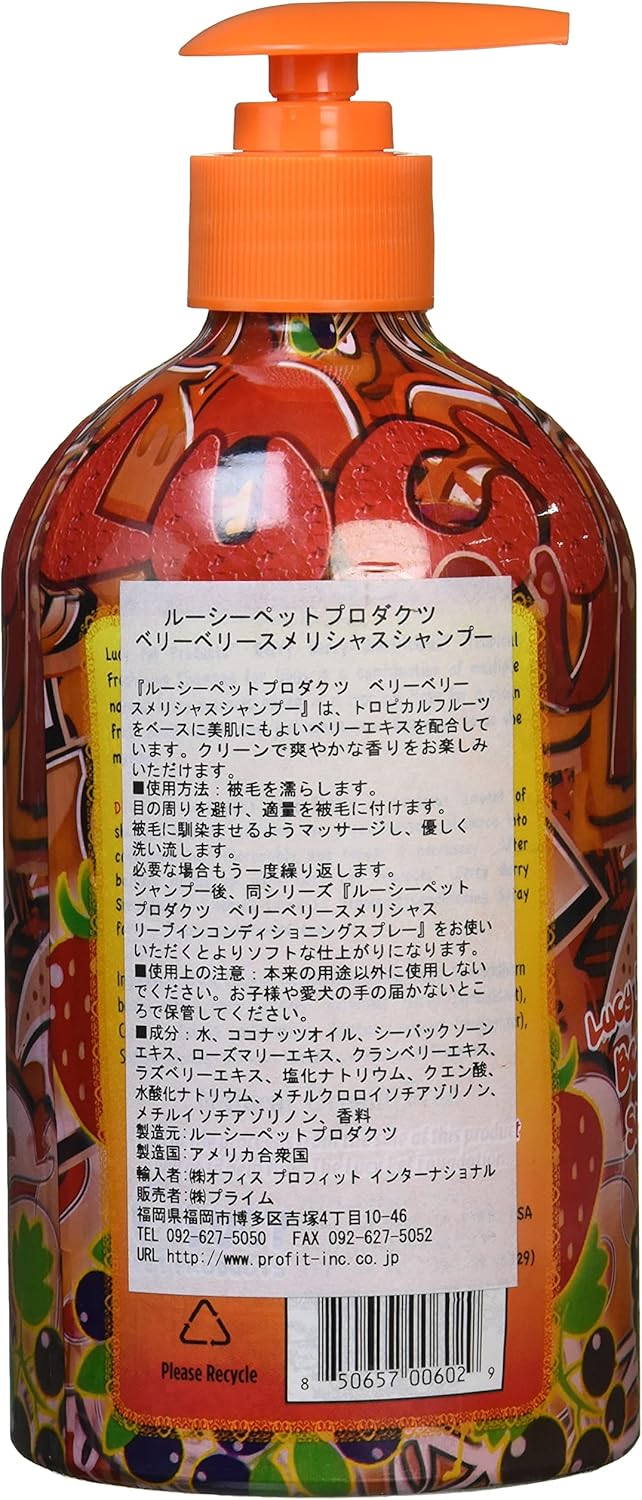 Lucy
ルーシーペットプロダクツ
ベリーベリースメリシャスシャンプー
『ルーシーペットプロダクツ　ベリーベリー
スメリシャスシャンプー』は、トロピカルフルーツ
をベースに美肌にもよいベリーエキスを配合して
います。クリーンで爽やかな香りをお楽しみ
いただけます。
■使用方法：被毛を濡らします。
目の周りを避け、適量を被毛に付けます。
被毛に馴染ませるようマッサージし、優しく
洗い流します。
必要な場合もう一度繰り返します。
シャンプー後、同シリーズ『ルーシーペット
プロダクツ　ベリーベリースメリシャス
リーブインコンディショニングスプレー』をお使い
いただくとよりソフトな仕上がりになります。
■使用上の注意：本来の用途以外に使用しない
でください。お子様や愛犬の手の届かないとこ
ろで保管してください。
■成分：水、ココナッツオイル、シーバックソーン
エキス、ローズマリーエキス、クランベリーエキス、
ラズベリーエキス、塩化ナトリウム、クエン酸、
水酸化ナトリウム、メチルクロロイソチアゾリノン、
メチルイソチアゾリノン、香料
製造元：ルーシーペットプロダクツ
製造国：アメリカ合衆国
輸入者：㈱オフィス プロフィット インターナショナル
販売者：㈱プライム
福岡県福岡市博多区吉塚4丁目10-46
TEL 092-627-5050　FAX 092-627-5052
URL http://www.profit-inc.co.jp
Please Recycle
8 50657 00602 9